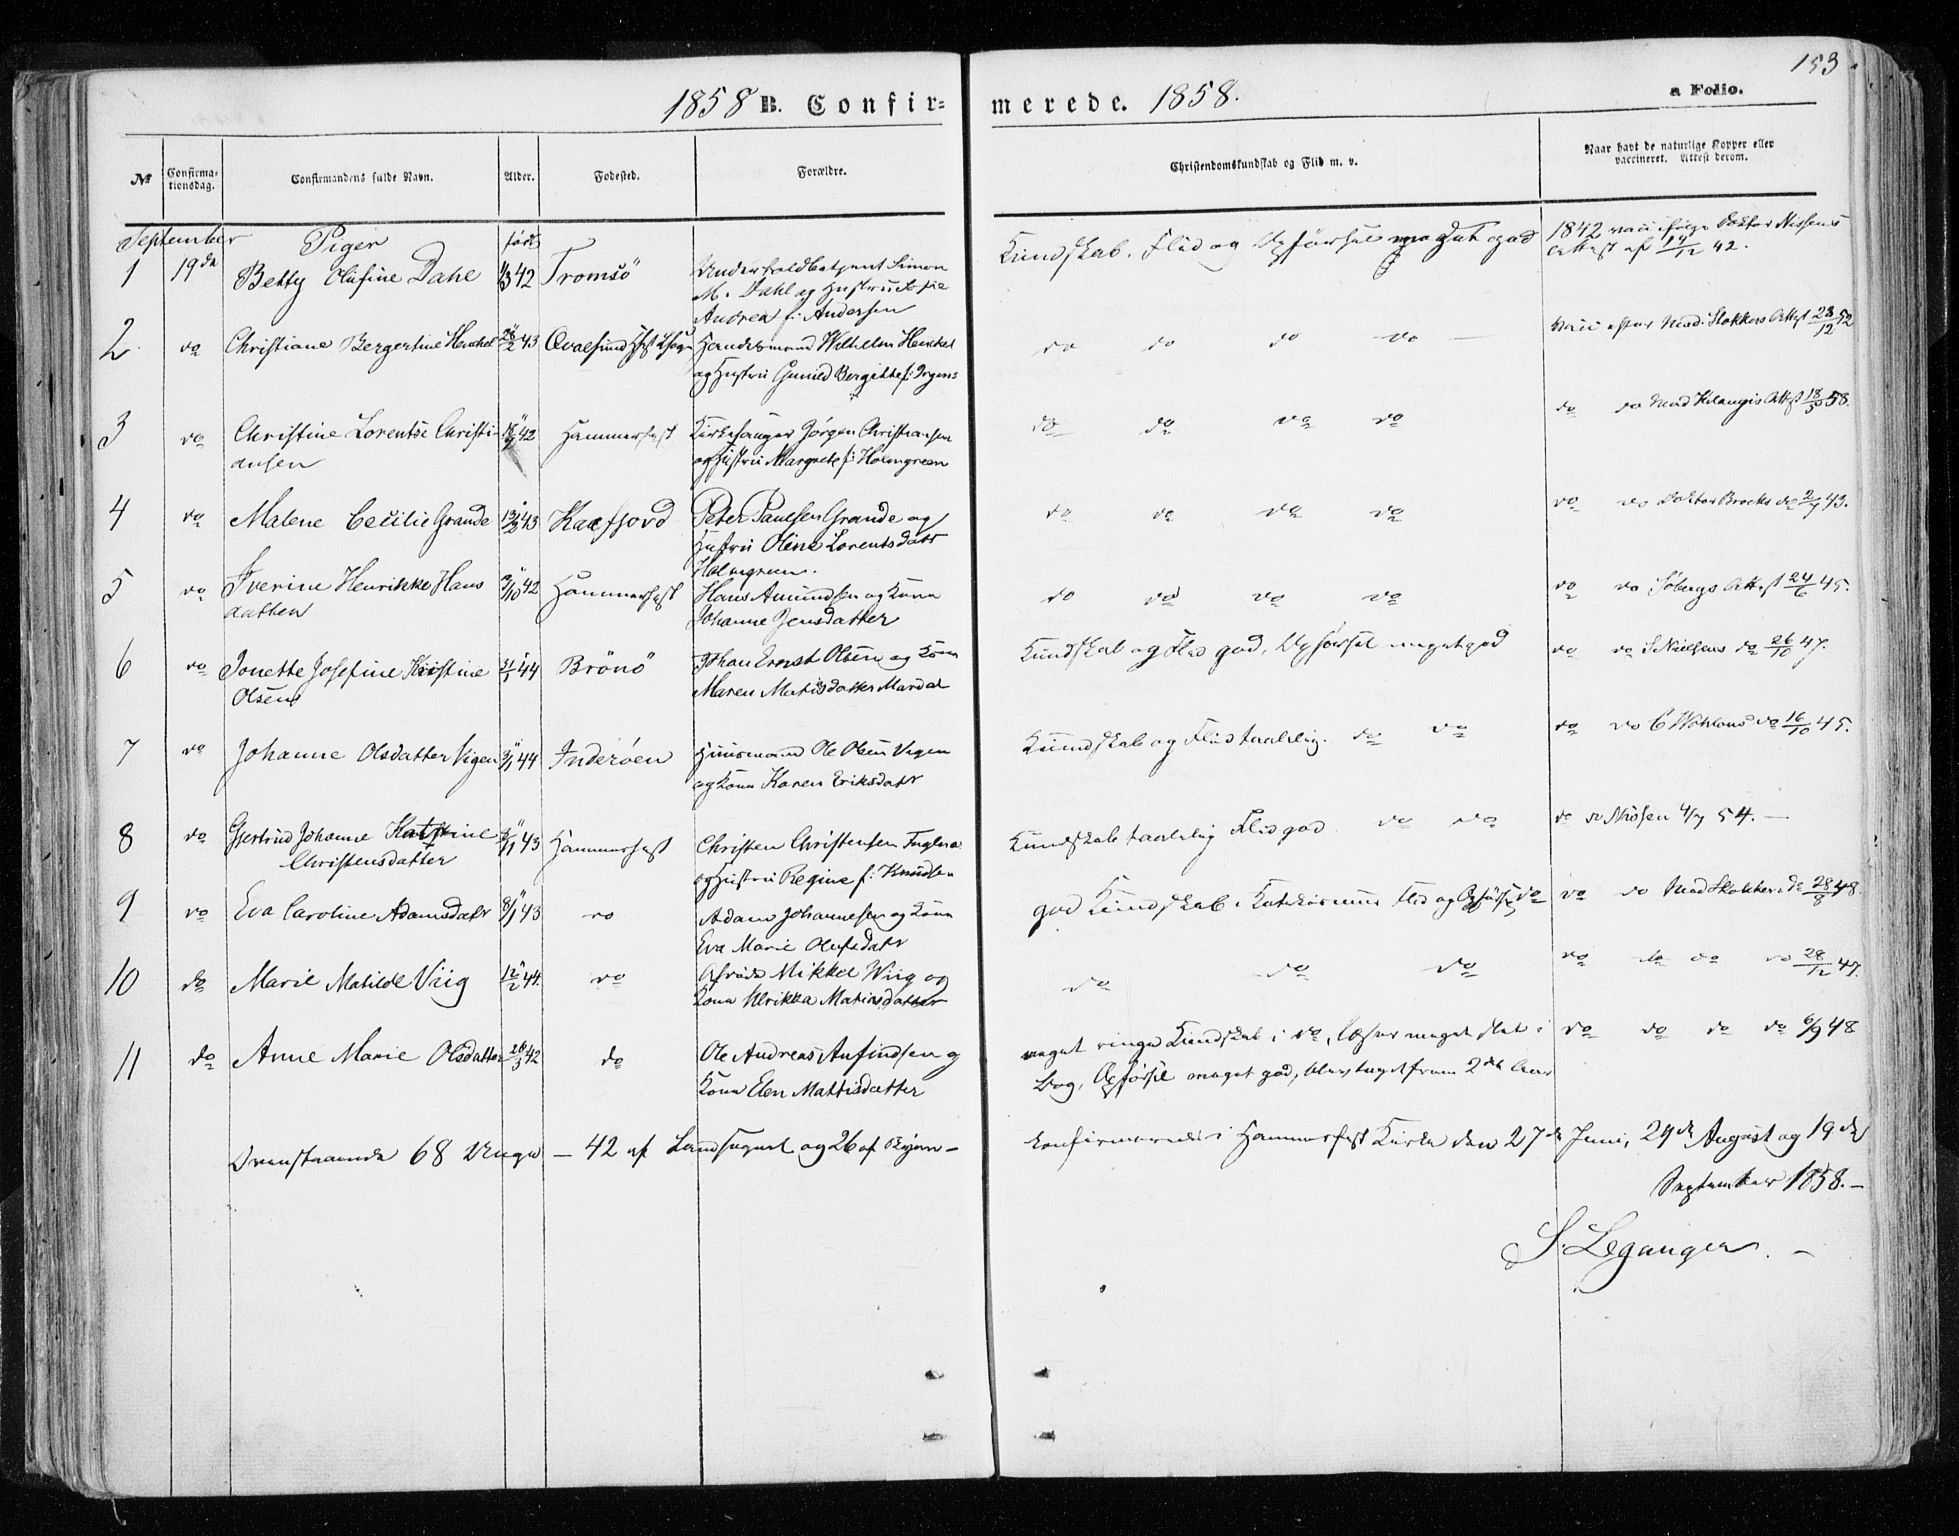 153
1858 B. Confir= merede. 1858. a Folio.
No Confirma-tionsdag. Confirmandens fulde Navn. Alder. Fødested. Forældre. Christendomskundskab og Flid m. v. Naar havt de naturlige Kopper eller vaccineret. Attest derom.
September Piger født
1 19de Betty Olufine Dahl 1/3 42 Tromsö Underfoldbetjent Simon Kundskab, Flid og Opförsel meget god 1842 vacc ifølge Doktor Nissens
M. Dahl og Hustru Attest af 14/12 42.
Andrea f: Andersen
2 do Christiane Bergertine Henckel 28/2 43 Qvalsund Handelsmand Wilhelm Henckel do do do do vacc efter Mad. Stokkes Attest 28/12 52
og Hustru Gunild Bergitte f: Jrgens:
3 do Christine Lorentse Christi- 42 Hammerfest Kirkesanger Jörgen Christiansen do do do do do do Mad Attest 18/5 58.
ansen og Hustru Margrete f: Holmgreen
4 do Malene Cecilie Grande 13/2 43 Kaafjord Peter Paulsen Grande og do do do do do do Doktor Brocks do 43.
Hustru Oline Lorentsdatr
Holmgreen.
5 do Iverine Henrikke Hans 42 Hammerfest Hans Amundsen og Kone do do do do do do Söbergs Attest 24/6 45.
datter Johanne Jensdatter
6 do Jonette Josefine Kristine 44 Brönö Johan Ernst Olsen og Kone Kundskab og Flid god, Opförsel meget god do do S. Nielsens do 26/10 47.
Olsen Maren Matisdatter
7 do Johanne Olsdatter Vigen 44 Inderöen Huusmand Ole Olsen Vigen Kundskab og Flid taalelig. do do do do C do 16/10 45.
og Kone Karen Eriksdatr
8 do Gjertrud Johanne Katrine 43 Hammerfest Christen Christensen Kundskab taalelig Flid god do do do do 54.
Christensdatter og Hustru Regine f: Knudsen
9 do Eva Caroline Adamsdatr 8/1 43 do Adam Johannesen og Kone god Kundskab i Katekismus Flid og Opførsel do do do Mad Stokke do 28/8 48.
Eva Marie Olufsdatr
10 do Marie Matilde Viig 12/2 44. do Mikkel Wiig og do do do do do do do 28/12 47.
Kone Ulrikka Matiasdatter
11 do Anne Marie Olsdatter 26/3 42 do Ole Andreas Anfindsen og meget ringe Kundskab i do, læser meget slet i do do do do 6/9 48
Kone Elen Mattisdatter Bog, Opförsel meget god, blev taget frem 2det Aar
Ovenstaaende 68 Unge — 42 af Landsognet og 26 af Byen — konfirmerede i Hammerfest Kirke den 27de Juni, 29de August og 19de
September 1858. —
S. Leganger. —